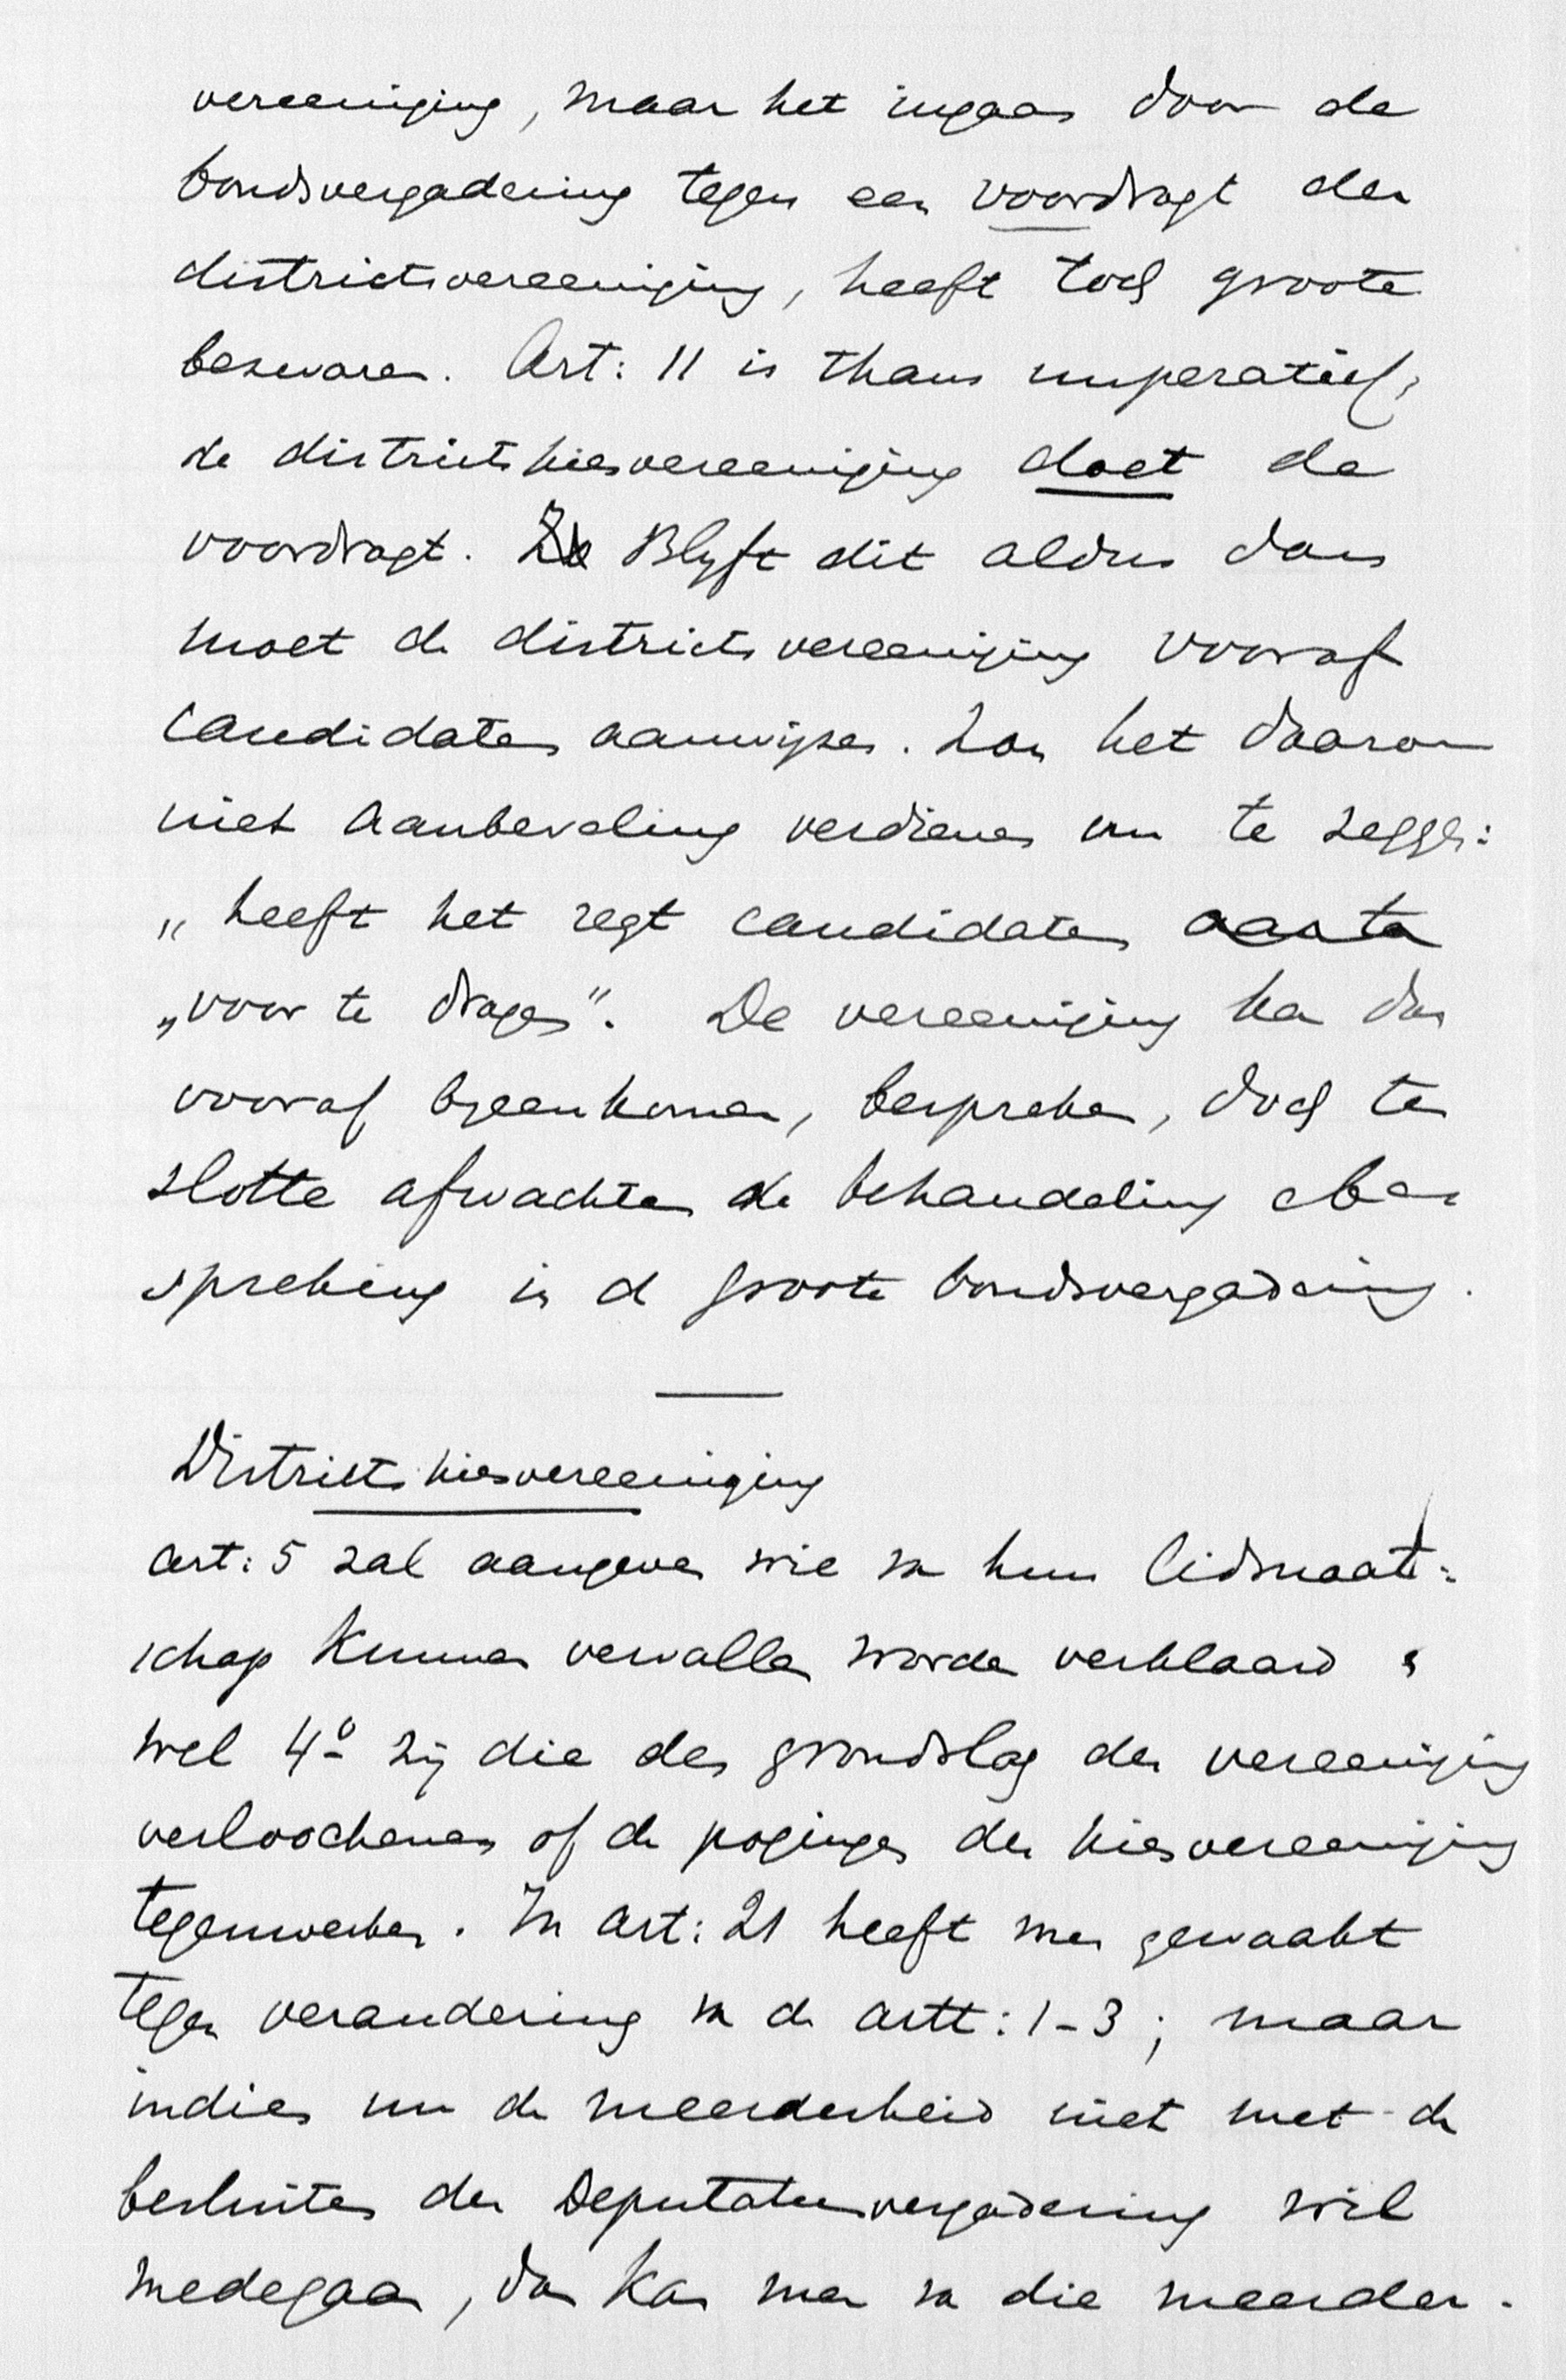 vereeniging, maar het ingaan door de
bondsvergadering tegen een voordragt der
districtsvereeniging, heeft toch groote
bezwaren. Art: 11 is thans imperatief;
de districtskiesvereeniging doet de
voordragt. Blyft dit aldus dan
moet de districtsvereeniging vooraf
candidaten aanwijzen. Zou het daarom
niet aanbeveling verdienen om te zeggen:
„heeft het regt candidaten aan te
„voor te dragen". De vereeniging kan dan
vooraf byeenkomen, bespreken, doch ten
slotte afwachten de behandeling & be=
spreking in de groote bondsvergadering.
Districtskiesvereeniging
art: 5 zal aangeven wie van hun lidmaat=
schap kunnen vervallen worden verklaard &
wel 4o zij die den grondslag der vereeniging
verloochenen of de pogingen der kiesvereeniging
tegenwerken. In art: 21 heeft men gewaakt
tegen verandering van de artt: 1-3; maar
indien nu de meerderheid niet met de
besluiten der Deputatenvergadering wil
medegaan, dan kan men van die meerder-